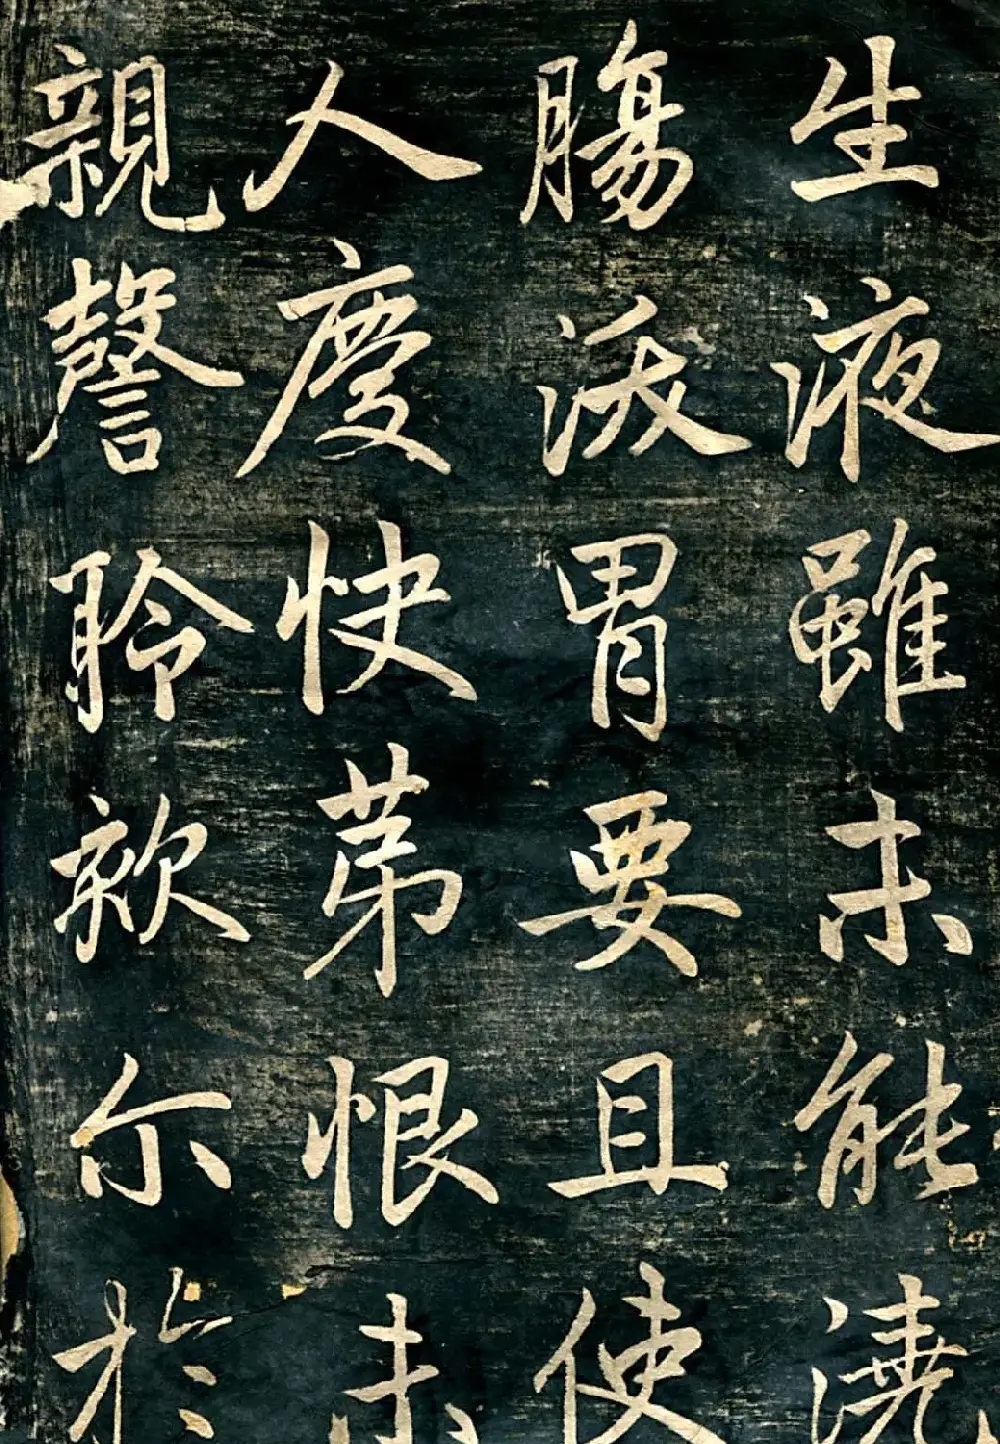 生液雖未能澆
腸沃胃要且使
人慶快苐恨未
親謦聆欬尒於